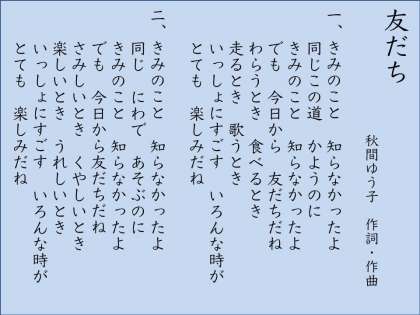 友だち
秋間ゆう子　作詞・作曲
一、きみのこと　知らなかったよ
同じこの道　かようのに
きみのこと　知らなかったよ
でも　今日から　友だちだね
わらうとき　食べるとき
走るとき　歌うとき
いっしょにすごす　いろんな時が
とても　楽しみだね
二、きみのこと　知らなかったよ
同じ　にわで　あそぶのに
きみのこと　知らなかったよ
でも　今日から友だちだね
さみしいとき　くやしいとき
楽しいとき　うれしいとき
いっしょにすごす　いろんな時が
とても　楽しみだね